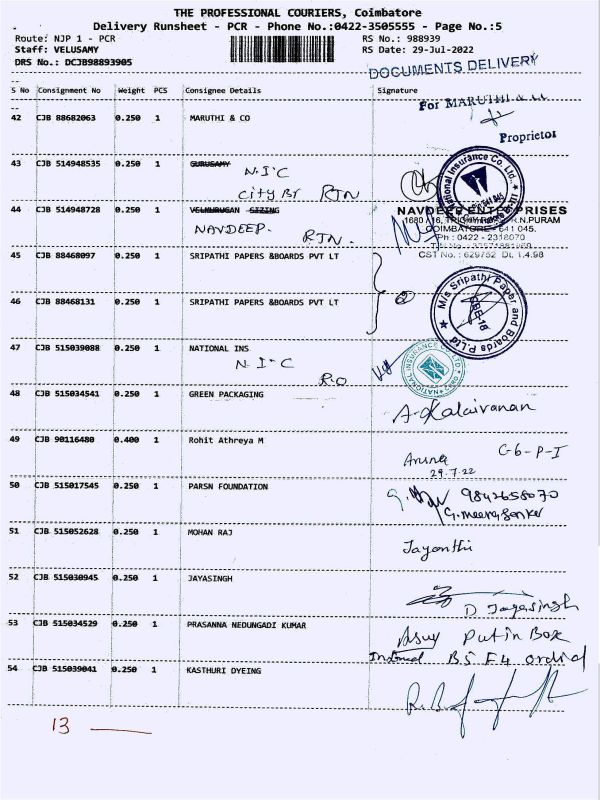 THE PROFESSIONAL COURIERS, Coimbatore
Delivery Runsheet - PCR - Phone No.:0422-3505555 - Page No.:5
Route: NJP 1 - PCR RS No.: 988939
Staff: VELUSAMY RS Date: 29-Jul-2022
DRS No.: DCJB98893905
DOCUMENTS DELIVERY
S No Consignment No Weight PCS Consignee Details Signature
For MARUTHI & CO
42 CJB 88682063 0.250 1 MARUTHI & CO
Proprietor
43 CJB 514948535 0.250 1 GURUSAMY
N.I.C
City Br RTN
National Insurance Co. Ltd.
44 CJB 514948728 0.250 1 VELMURUGAN SIZING
NAVDEEP. RTN.
NAVDEEP ENTERPRISES
R.N.PURAM
COIMBATORE - 641 045.
Ph : 0422 - 2318070
CST No. : 629752 Dt. 1.4.98
45 CJB 88468097 0.250 1 SRIPATHI PAPERS &BOARDS PVT LT
46 CJB 88468131 0.250 1 SRIPATHI PAPERS &BOARDS PVT LT
2
M/s Sripathi Paper and Boards P.Ltd
CBE-18
47 CJB 515039088 0.250 1 NATIONAL INS
N.I.C
R.O
NATIONAL INSURANCE CO LTD
48 CJB 515034541 0.250 1 GREEN PACKAGING
A-Kalaivanan
49 CJB 90116480 0.400 1 Rohit Athreya M
Aruna G-6-P-I
29.7.22
50 CJB 515017545 0.250 1 PARSN FOUNDATION
9842658070
G.meerasanker
51 CJB 515052628 0.250 1 MOHAN RAJ
Jayanthi
52 CJB 515030945 0.250 1 JAYASINGH
D Jayasingh
53 CJB 515034529 0.250 1 PRASANNA NEDUNGADI KUMAR
Put in Box
B5 F4 orchid
54 CJB 515039041 0.250 1 KASTHURI DYEING
13